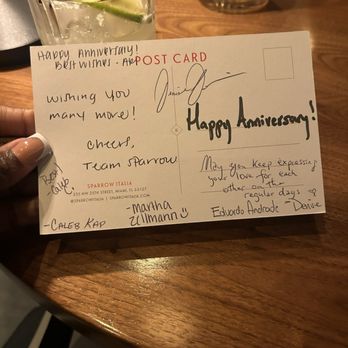 Happy Anniversary!
Best wishes - 
POST CARD
wishing you
many more!
Cheers,
Team Sparrow
Happy Anniversary!
May you keep expressing
your love for each
other on the
regular days
- Devine
Eduardo Andrade
Best
SPARROW ITALIA
255 NW 25TH STREET, MIAMI, FL 33127
@SPARROWITALIA | SPARROWITALIA.COM
-Martha
Ullmann
-CALEB KAP